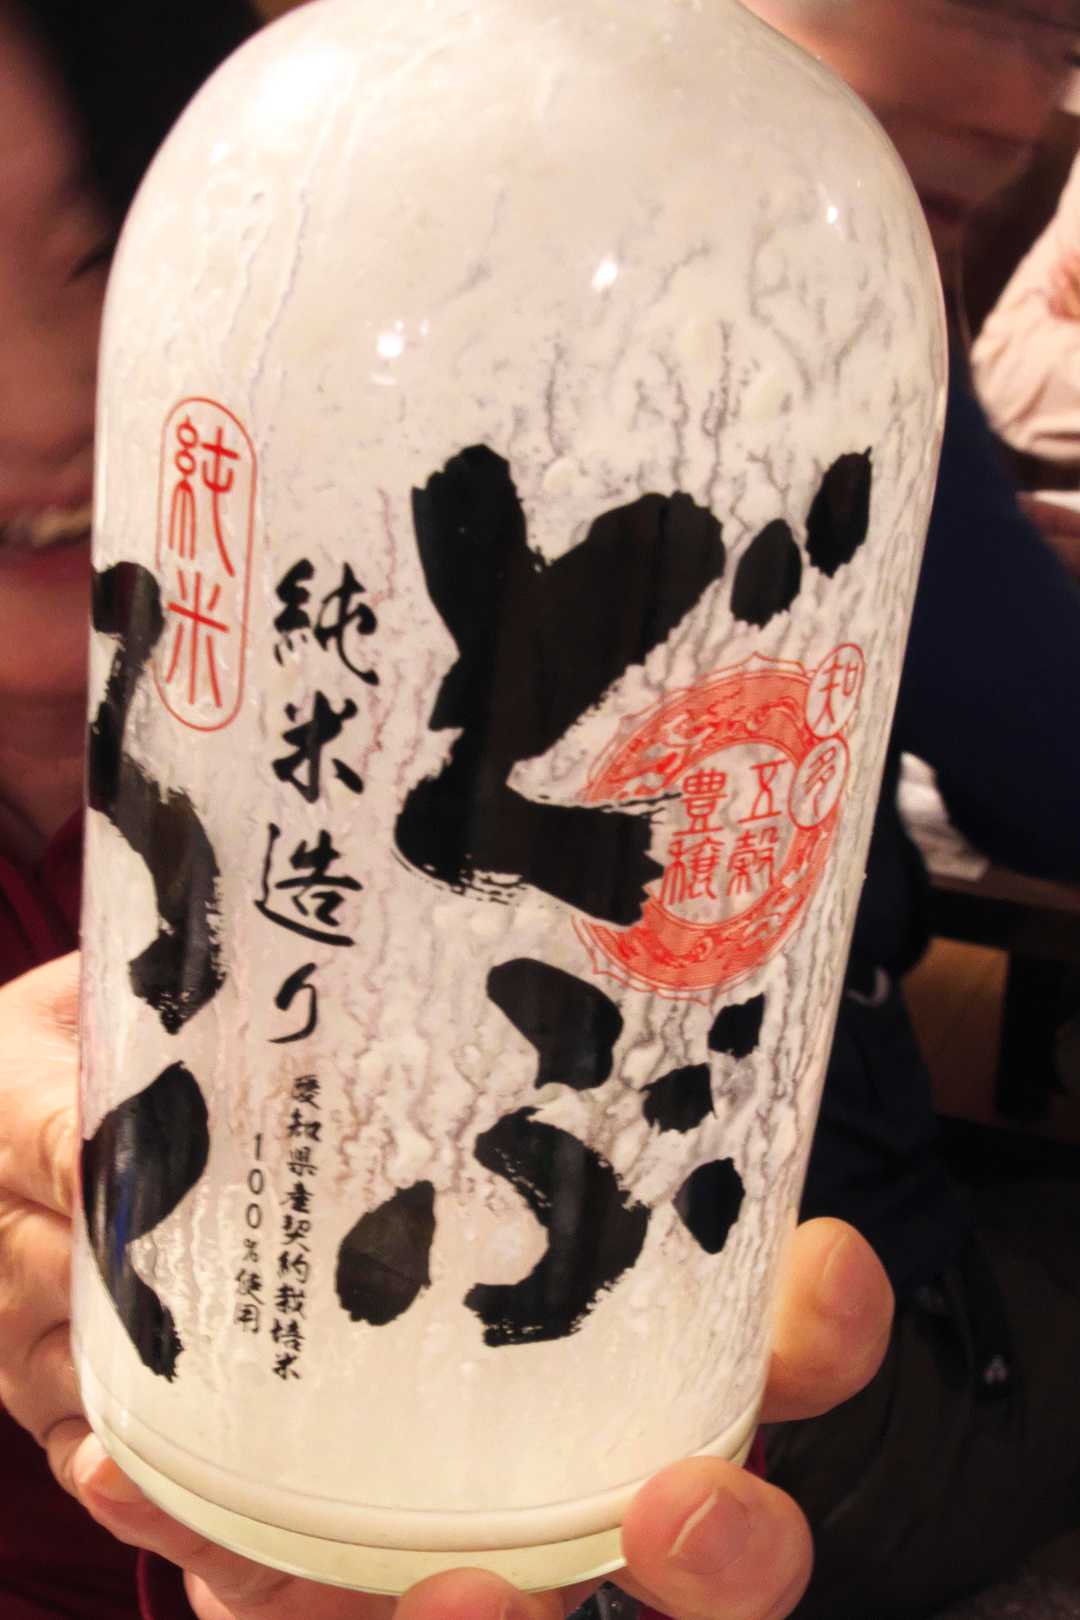 どぶ
ろく
知多
五穀
豊穣
純米造り
愛知県産契約栽培米
100%使用
純米